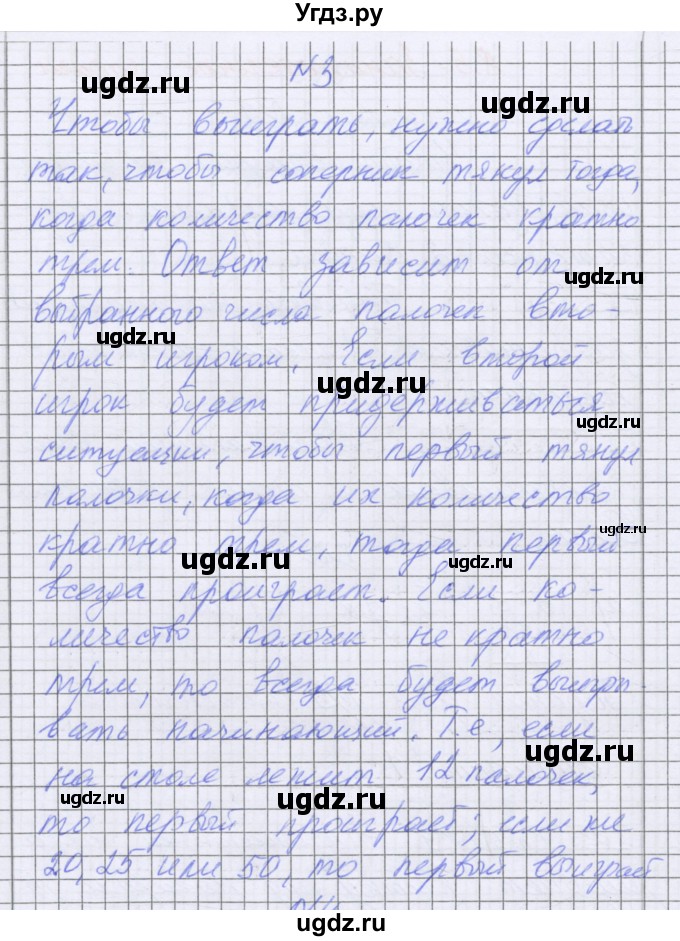 Угдз.ру
ugdz.ru ugdz.ru
N3
Чтобы выиграть, нужно сделать
так, чтобы соперник тянул тогда,
когда количество палочек кратно
трем. Ответ зависит от
ugdz.ru
выбранного числа палочек вто-
ugdz.ru
рым игроком. Если второй
ugdz.ru
игрок будет придерживаться
ugdz.ru
ситуации, чтобы первый тянул
палочки, когда их количество
ugdz.ru
кратно трем, тогда первый
ugdz.ru ugdz.ru
всегда проиграет. Если ко-
личество палочек не кратно
трем, то всегда будет выигры-
вать начинающий. Т.е, если
ugdz.ru
на столе лежит 12 палочек,
ugdz.ru ugdz.ru
то первый проиграет; если же
20, 25 или 50, то первый выиграет
N4
ugdz.ru